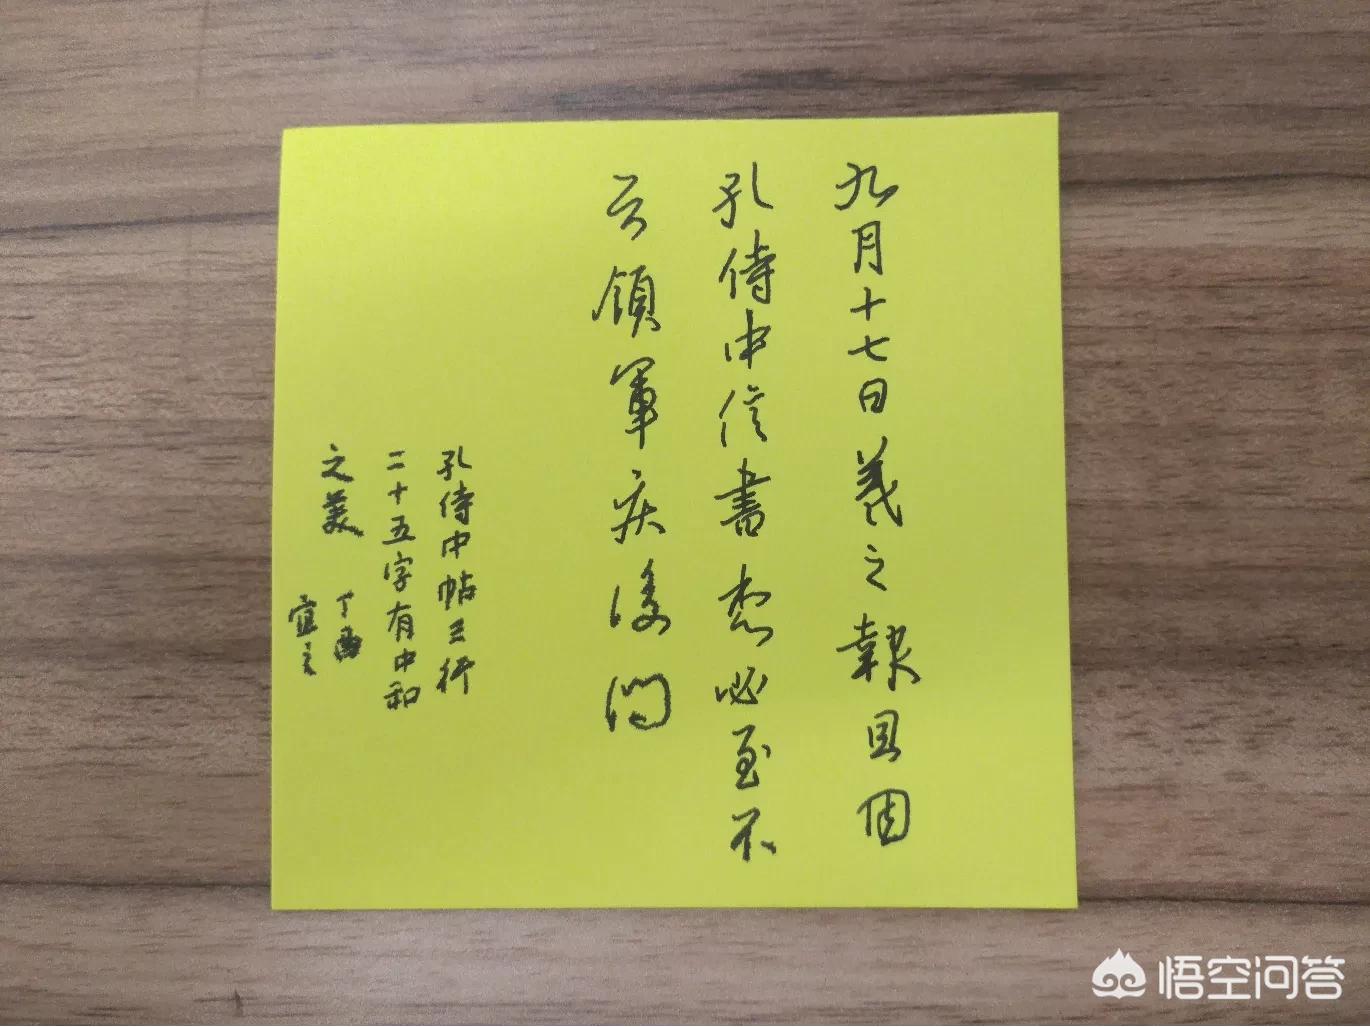 九月十七日羲之報且因
孔侍中信書想必至不
知領軍疾後問
孔侍中帖三行
二十五字有中和
之美 丁酉
悟空问答